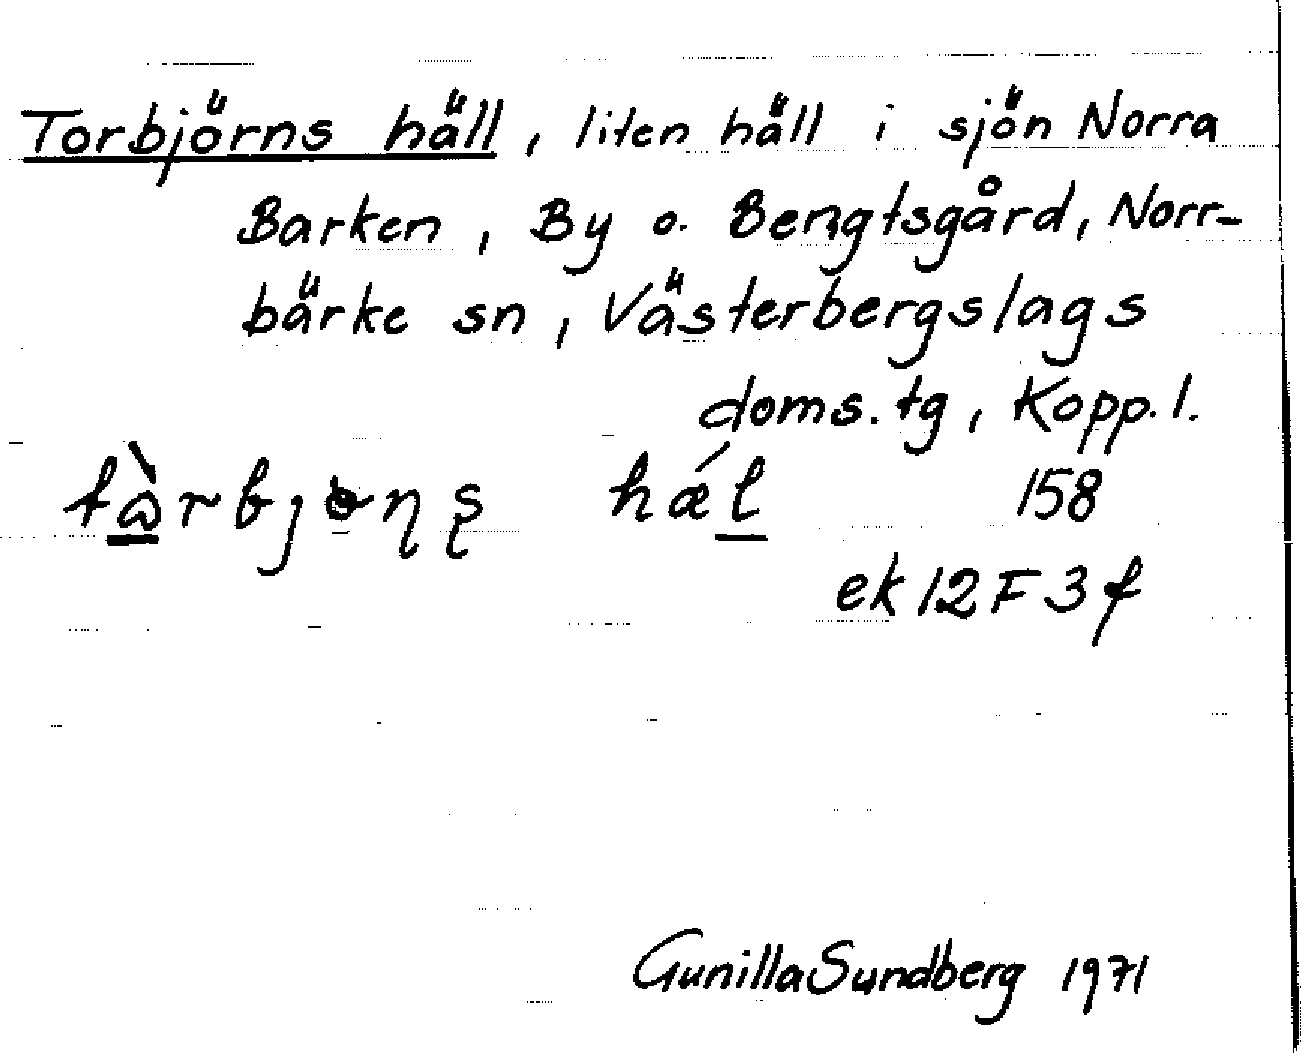 Torbjörns häll, liten häll i sjön Norra
Barken, By o. Bengtsgård, Norr-
bärke sn, Västerbergslags
doms. tg, Kopp. l.
158
ek 12 F 3 f
Gunilla Sundberg 1971